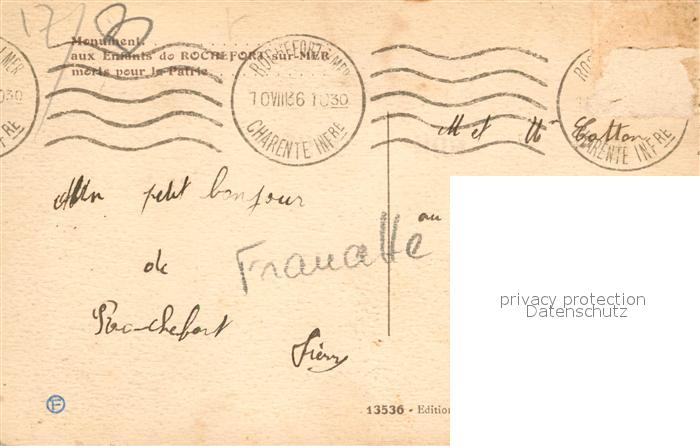 17/8
Monument
aux Enfants de ROCHEFORT-sur-MER
morts pour la Patrie
ROCHEFORT S MER
10 VIII 36 1030
CHARENTE INFRE
MER
1030
FRE
RO
CHARENTE INFRE
M et
Un petit bonjour
de
Rochefort
au
13536 - Edition
F
privacy protection
Datenschutz